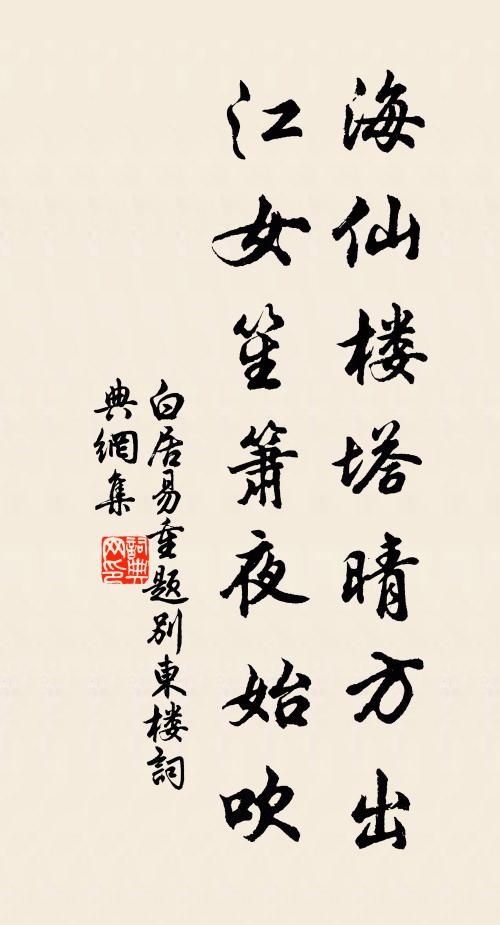 海仙楼塔晴方出
江女笙簫夜始吹
白居易重题别東楼詞
典網集
詞典
网印